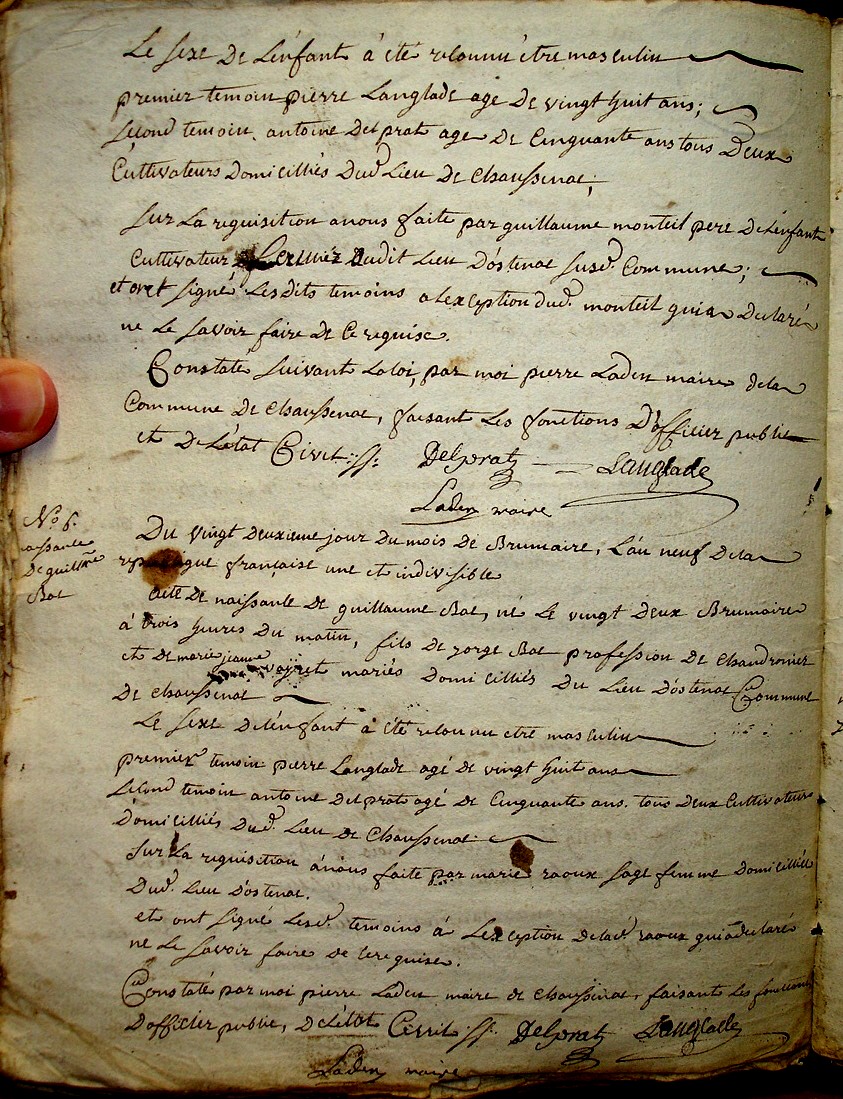 Le sexe de L'enfant à été reconnu être masculin
premier temoin pierre Langlade age de vingt huit ans;
second temoin antoine delprat age de Cinquante ans tous Deux
Cultivateurs domicilliés dud. Lieu de chaussenac;
Sur La requisition anous faite par guillaume monteil pere de L'enfant
Cultivateur audit Lieu d'ostenac susd. Commune;
et ont signé Lesdits temoins a l'exception dud. monteil qui a declaré
ne Le savoir faire de Ce requise.
Constaté suivant La loi, par moi pierre Laden maire dela
Commune de chaussenac, faisant Les fonctions D'officier public
et de L'état Civil.
Delprat Langlade
Laden maire
No 6.
naissante
de guillme
Bac
Du vingt deuxieme jour du mois de Brumaire, L'an neuf dela
republique française une et indivisible
acte de naissante de guillaume Bac, né Le vingt deux Brumaire
à trois heures du matin, fils de jorge Bac profession de chaudronier
et de marie jeanne voyret mariés domicilliés du Lieu d'ostenac Commune
de chaussenac
Le sexe de L'enfant a été reconnu etre masculin
premier temoin pierre Langlade agé de vingt huit ans
second temoin antoine delprat agé de Cinquante ans. tous deux Cultivateurs
domicilliés dud. Lieu de chaussenac
Sur La requisition à nous faite par marie raoux sage femme domicilliée
dud. Lieu d'ostenac.
et ont signé lesd. temoins à L'exception delad. raoux qui a declaré
ne Le savoir faire de Ce requise.
Constaté par moi pierre Laden maire de chaussenac, faisant Les fonctions
D'officier public, de L'état Civil Delprat Langlade
Laden maire